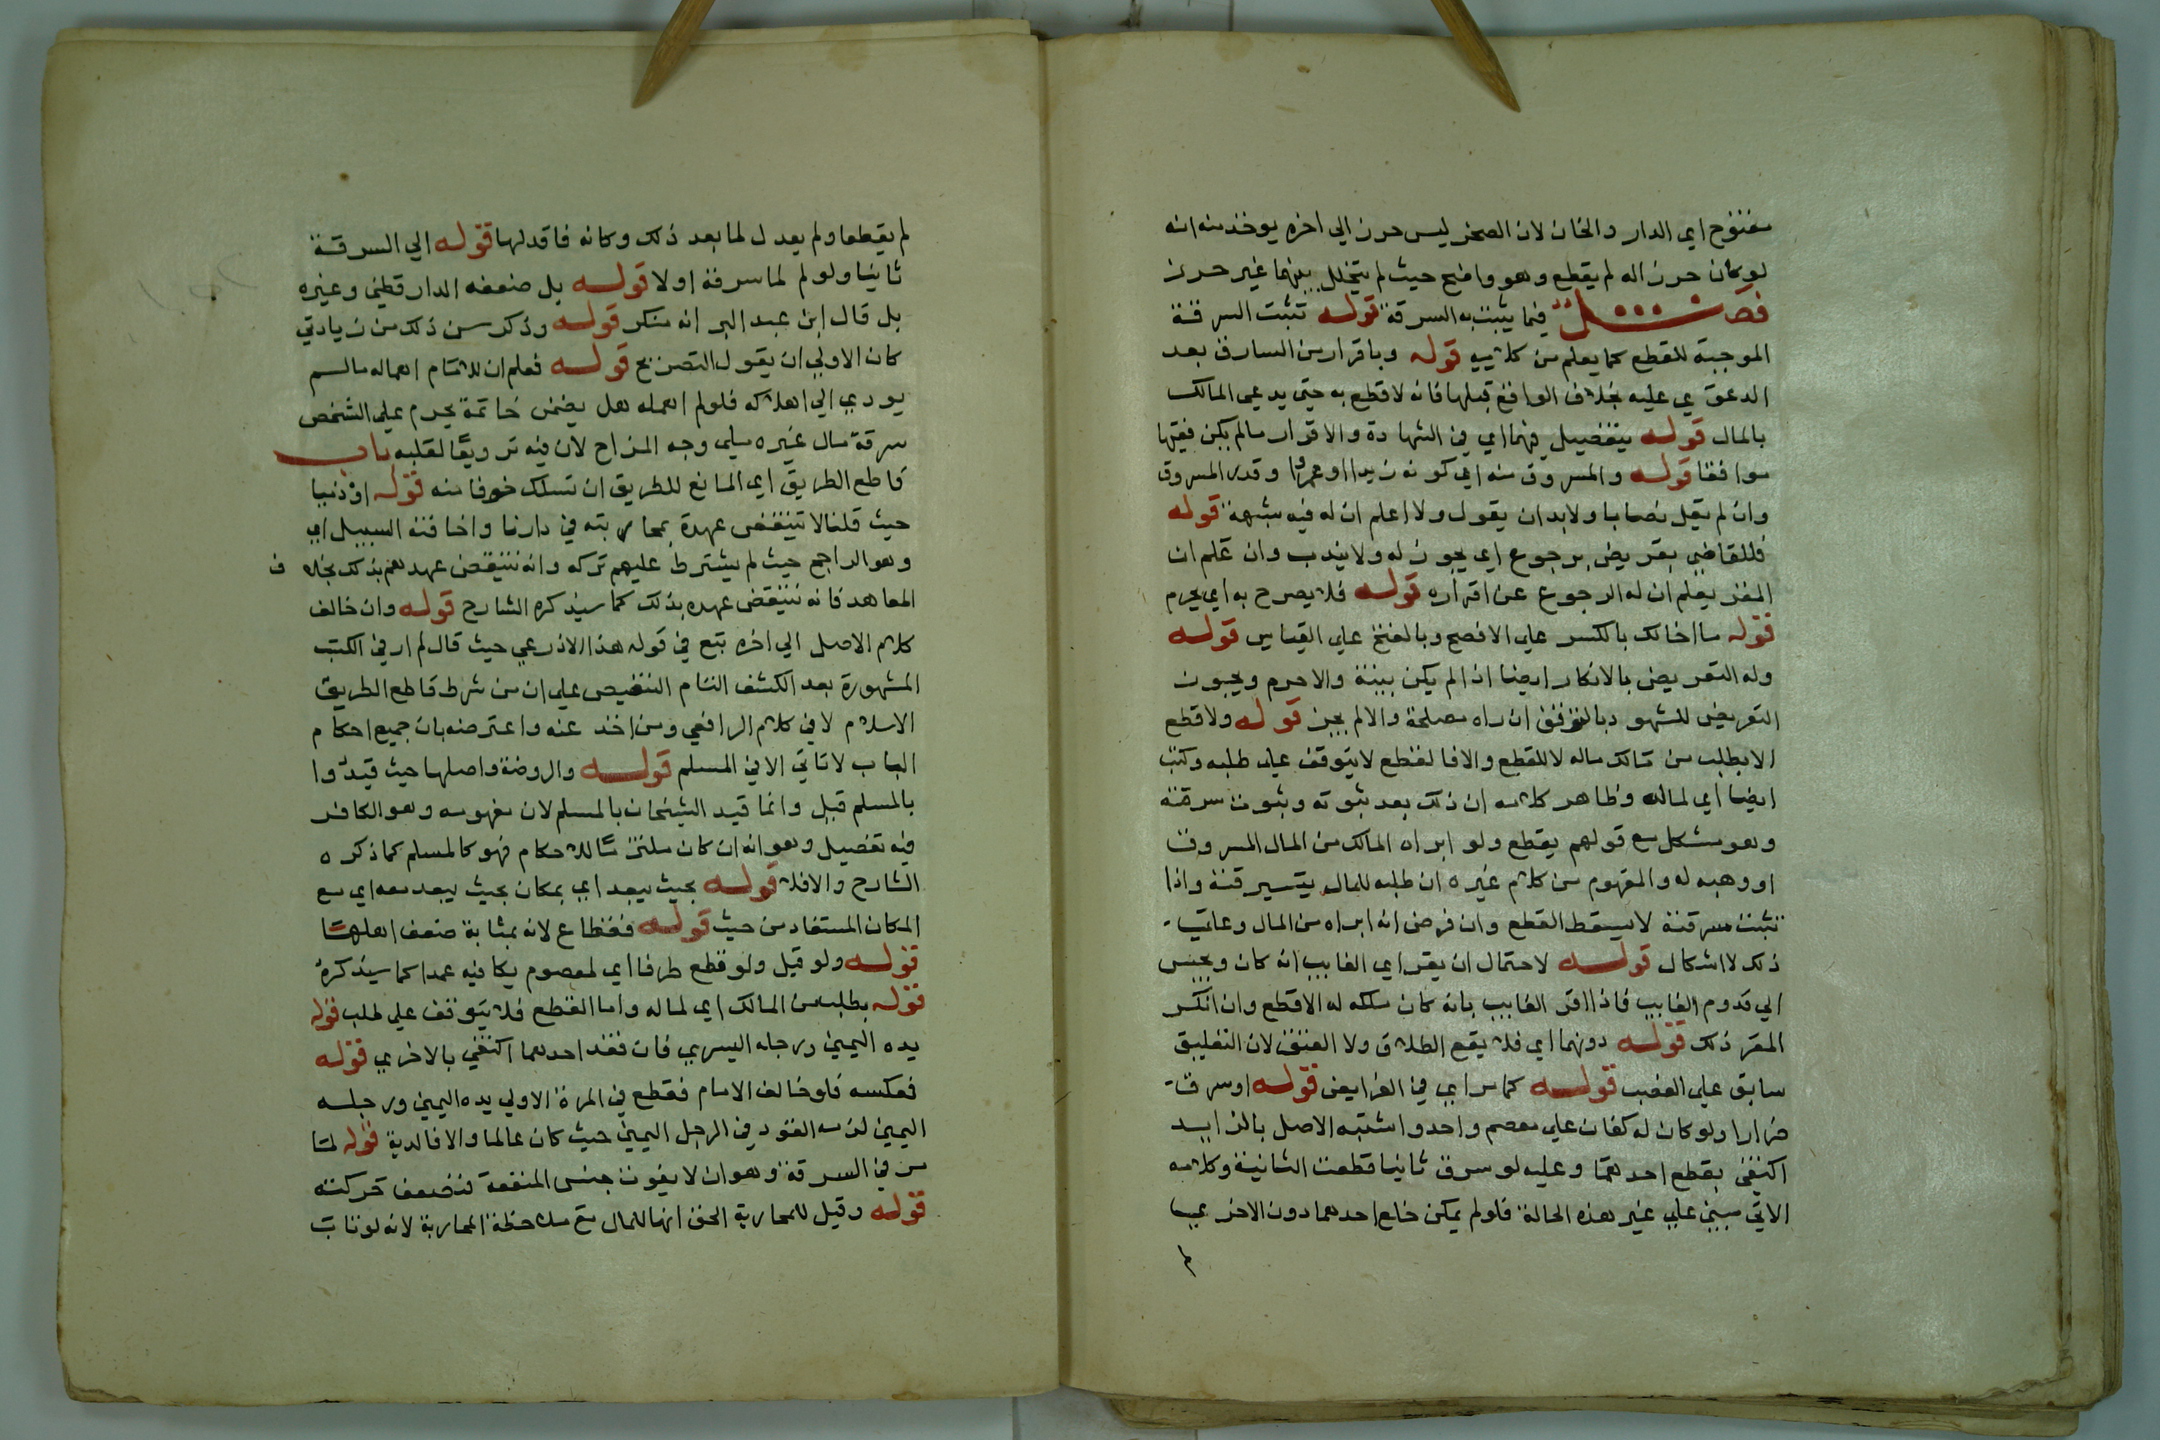 مفتوح اي الدار والخان لان الصخر ليس حرز الي اخره يوخذ منه انه
لو كان حرزا له لم يقطع وهو واضح حيث لم يتخلل بينهما غير حرز
فصل فيما يثبت به السرقة قوله تثبت السرقة
الموجبة للقطع كما يعلم من كلاميه قوله وباقرار من السارق بعد
الدعوي عليه بخلاف الواقع قبلها فانه لا قطع به حتي يدعي المالك
بالمال قوله بتفصيل فيهما اي في الشهادة والاقرار مالم يكن فقيها
موافقا قوله والمسروق منه اي كونه زيدا او عمروا وقدر المسروق
وان لم يقل نصابا ولابد ان يقول ولا اعلم ان له فيه شبهة قوله
فللقاضي تعريض برجوع اي يجوز له ولا يندب وان علم ان
المقر يعلم ان له الرجوع عن اقراره قوله فلا يصرح به اي يحرم
قوله ما اخالك بالكسر علي الافصح وبالفتح علي القياس قوله
وله التعريض بالانكار ايضا اذا لم يكن بينة والا حرم ويجوز
التعريض للشهود بالتوقف ان راه مصلحة والا لم يجز قوله ولا قطع
الا بطلب من مالك ماله لا للقطع والا فالقطع لا يتوقف علي طلبه وكتب
ايضا اي لماله وظاهر كلامه ان ذلك بعد ثبوته وبثوت سرقته
وهو مشكل مع قولهم يقطع ولو ابراه المالك من المال المسروق
او وهبه له والمفهوم من كلام غيره ان طلبه للمال يتسير قنة واذا
تثبت سرقته لا يسقط القطع وان فرض انه ابراه من المال وعلي
ذلك لا اشكال قوله لاحتمال ان يقر اي الغايب انه كان ويحبس
الي قدوم الغايب فاذا اقر الغايب بانه كان ملكه له الا قطع وان انكر
المقر ذلك قوله دونهما اي فلا يقع الطلاق ولا العتق لان التغليب
سابق علي الغصب قوله كما مر اي في الفرايض قوله او سرق
مرارا ولو كان له كفان علي معصم واحد واشتبه الاصل بالزايد
اكتفي بقطع احدهما وعليه لو سرق ثانيا قطعت الثانية وكلامه
الاتي مبني علي غير هذه الحالة فلو لم يمكن خلع احدهما دون الاخر
لم
لم يقطعا ولم يعدل لما بعد ذلك وكانه فاقد لها قوله الي السرقة
ثانيا ولو لم لما سرقة اولا قوله بل ضعفه الدارقطني وغيره
بل قال ابن عبد البر انه منكر قوله وذكر من ذلك من زيادتي
كان الاولي ان يقول التصريح قوله فعلم ان للامام اهماله مالم
يودي الي اهلاكه فلو لم اهمله هل يضمن خاتمة يحرم علي الشخص
سرقة مال غيره علي وجه المزاح لان فيه ترويعا لقلبه باب
قاطع الطريق اي المانع للطريق ان تسلك خوفا منه قوله او ذميا
حيث قلنا لا تنتقض عهدة بمحاربته في دارنا واخافته السبيل اي
وهو الراجح حيث لم يشترط عليهم تركه وانه تنتقض عهدهم بذلك بخلاف
المعاهد فانه تنتقض عهده بذلك كما سيذكره الشارح قوله وان خالف
كلام الاصل الي اخره تبع في قوله هذا الاذرعي حيث قال لم ار في الكتب
المشهورة بعد الكشف التام التنصيص علي ان من شرط قاطع الطريق
الاسلام لا في كلام الرافعي ومن اخذ عنه واعترضه بان جميع احكام
الباب لا تاتي الا في المسلم قوله والروضة واصلها حيث قيدوا
بالمسلم قبل وانما قيد الشيخان بالمسلم لان مفهومه وهو الكافر
فيه تفصيل وهو انه ان كان ملتزما للاحكام فهو كالمسلم كما ذكره
الشارح والا فلا قوله بحيث يبعد اي بمكان بحيث يبعد معه اي مع
المكان المستفاد من حيث قوله فقطاع لانه بمثابة ضعف اهلها
قوله ولو قيل ولو قطع طرفا اي لمعصوم يكافيه عمدا كما سيذكره
قوله بطلب من المالك اي لماله واما القطع فلا يتوقف علي طلب قوله
يده اليمني ورجله اليسري فان فقد احدهما اكتفي بالاخري قوله
فعكسه فلو خالف الامام فقطع في المرة الاولي يده اليمني ورجله
اليمني لزمه القود في الرجل اليمني حيث كان عالما والا فالدية قوله لما
مر في السرقة وهو ان لا يفوت جنس المنفعة فتضعف حركته
قوله وقيل للمحاربة الحق انها للمال مع ملاحظة المحاربة لانه لو تاب